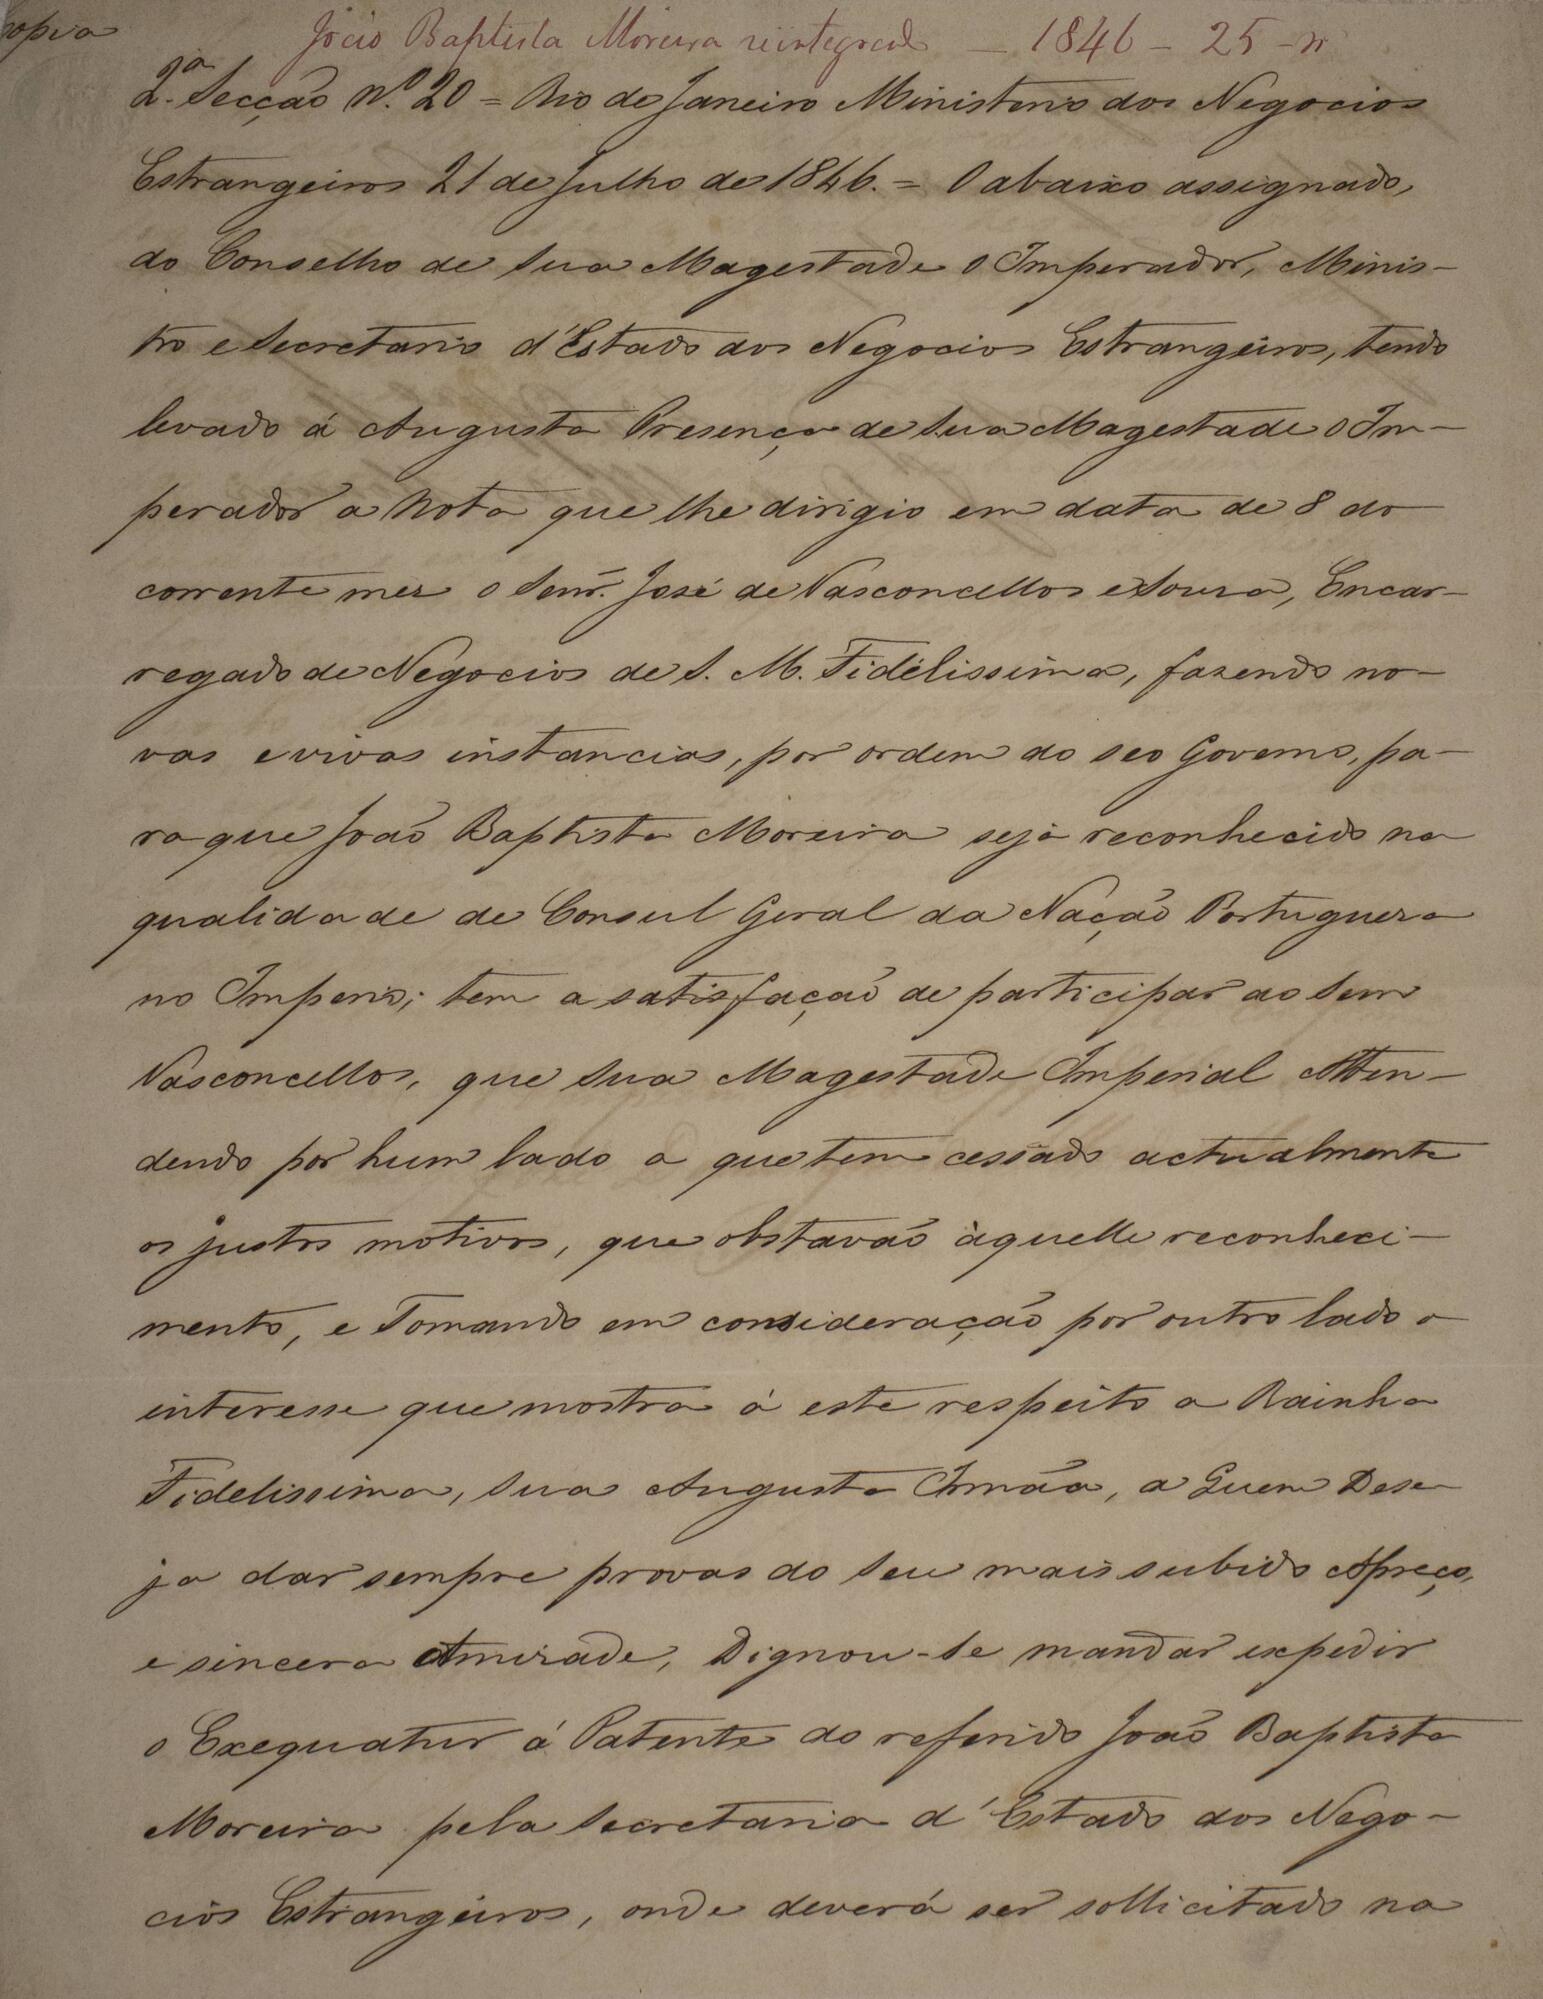 Copia
João Baptista Moreira reintegrado — 1846 — 25 -
2.ª Secção N.º 20 = Rio de Janeiro Ministerio dos Negocios
Estrangeiros 21 de Julho de 1846. = O abaixo assignado,
do Conselho de Sua Magestade o Imperador, Minis-
tro e Secretario d'Estado dos Negocios Estrangeiros, tendo
levado á Augusta Presença de Sua Magestade o Im-
perador a Nota que lhe dirigio em data de 8 do
corrente mez o Senr. José de Vasconcellos e Souza, Encar-
regado de Negocios de S. M. Fidélissima, fazendo no-
vas e vivas instancias, por ordem do seo Governo, pa-
ra que João Baptista Moreira seja reconhecido na
qualidade de Consul Geral da Nação Portugueza
no Imperio; tem a satisfação de participar ao Senr
Vasconcellos, que Sua Magestade Imperial Atten-
dendo por hum lado a que tem cessado actualmente
os justos motivos, que obstavaõ àquelle reconheci-
mento, e Tomando em consideração por outro lado o
interesse que mostra á este respeito a Rainha
Fidelissima, Sua Augusta Irmãa, a Quem Dese-
ja dar sempre provas do Seu mais subido Apreço,
e sincera Amizade, Dignou-Se mandar expedir
o Exequatur á Patente do referido João Baptista
Moreira pela Secretaria d'Estado dos Nego-
cios Estrangeiros, onde deverá ser sollicitado na